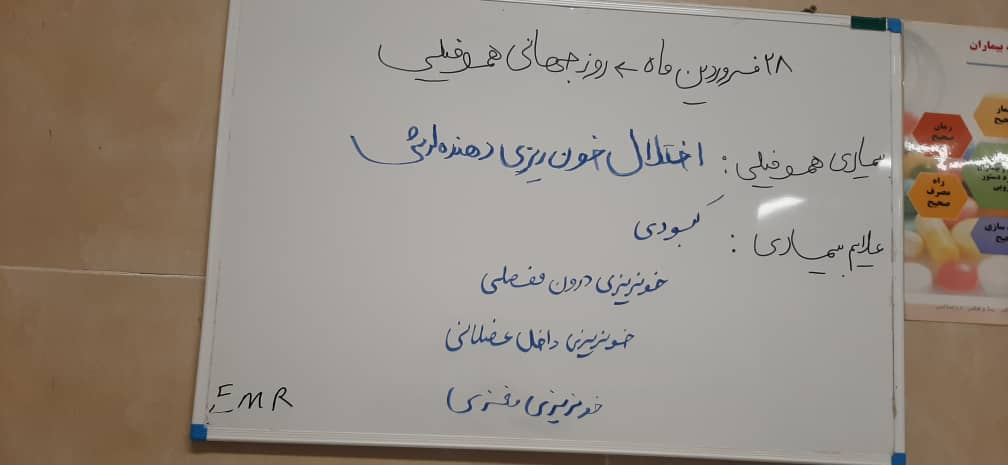 ۲۸ فروردین ماه ← روز جهانی هموفیلی
بیماری هموفیلی : اختلال خون ریزی دهنده ارثی
علایم بیماری : کبودی
خونریزی درون مفصلی
خونریزی داخل عضلانی
خونریزی مغزی
EMR
بیماران
زمان
صحیح
راه
مصرف
صحیح